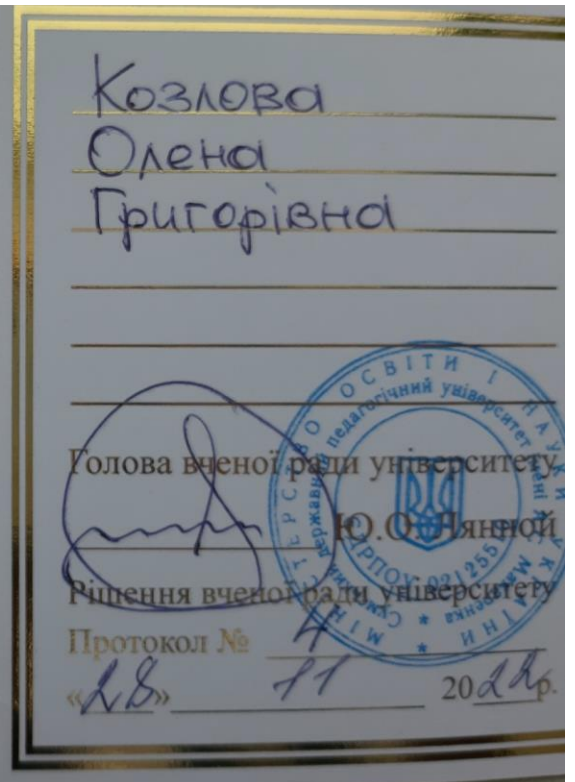 Козлова
Олена
Григорівна
Голова вченої ради університету
Ю.О. Лянной
Рішення вченої ради університету
Протокол № 4
«28» 11 2022р.
МІНІСТЕРСТВО ОСВІТИ І НАУКИ УКРАЇНИ
Сумський державний педагогічний університет імені Макаренка
ЄДРПОУ 021255